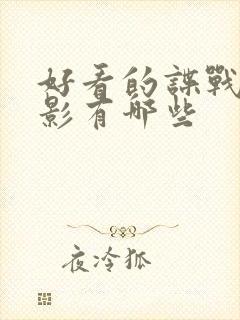 好看的諜戰
影有哪些
夜冷狐